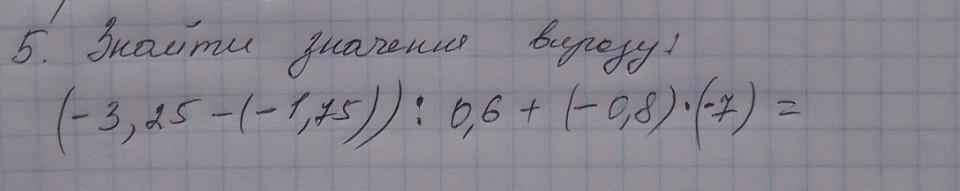 5. Знайти значення виразу:
(-3,25-(-1,75)):0,6+(-0,8)·(-7)=